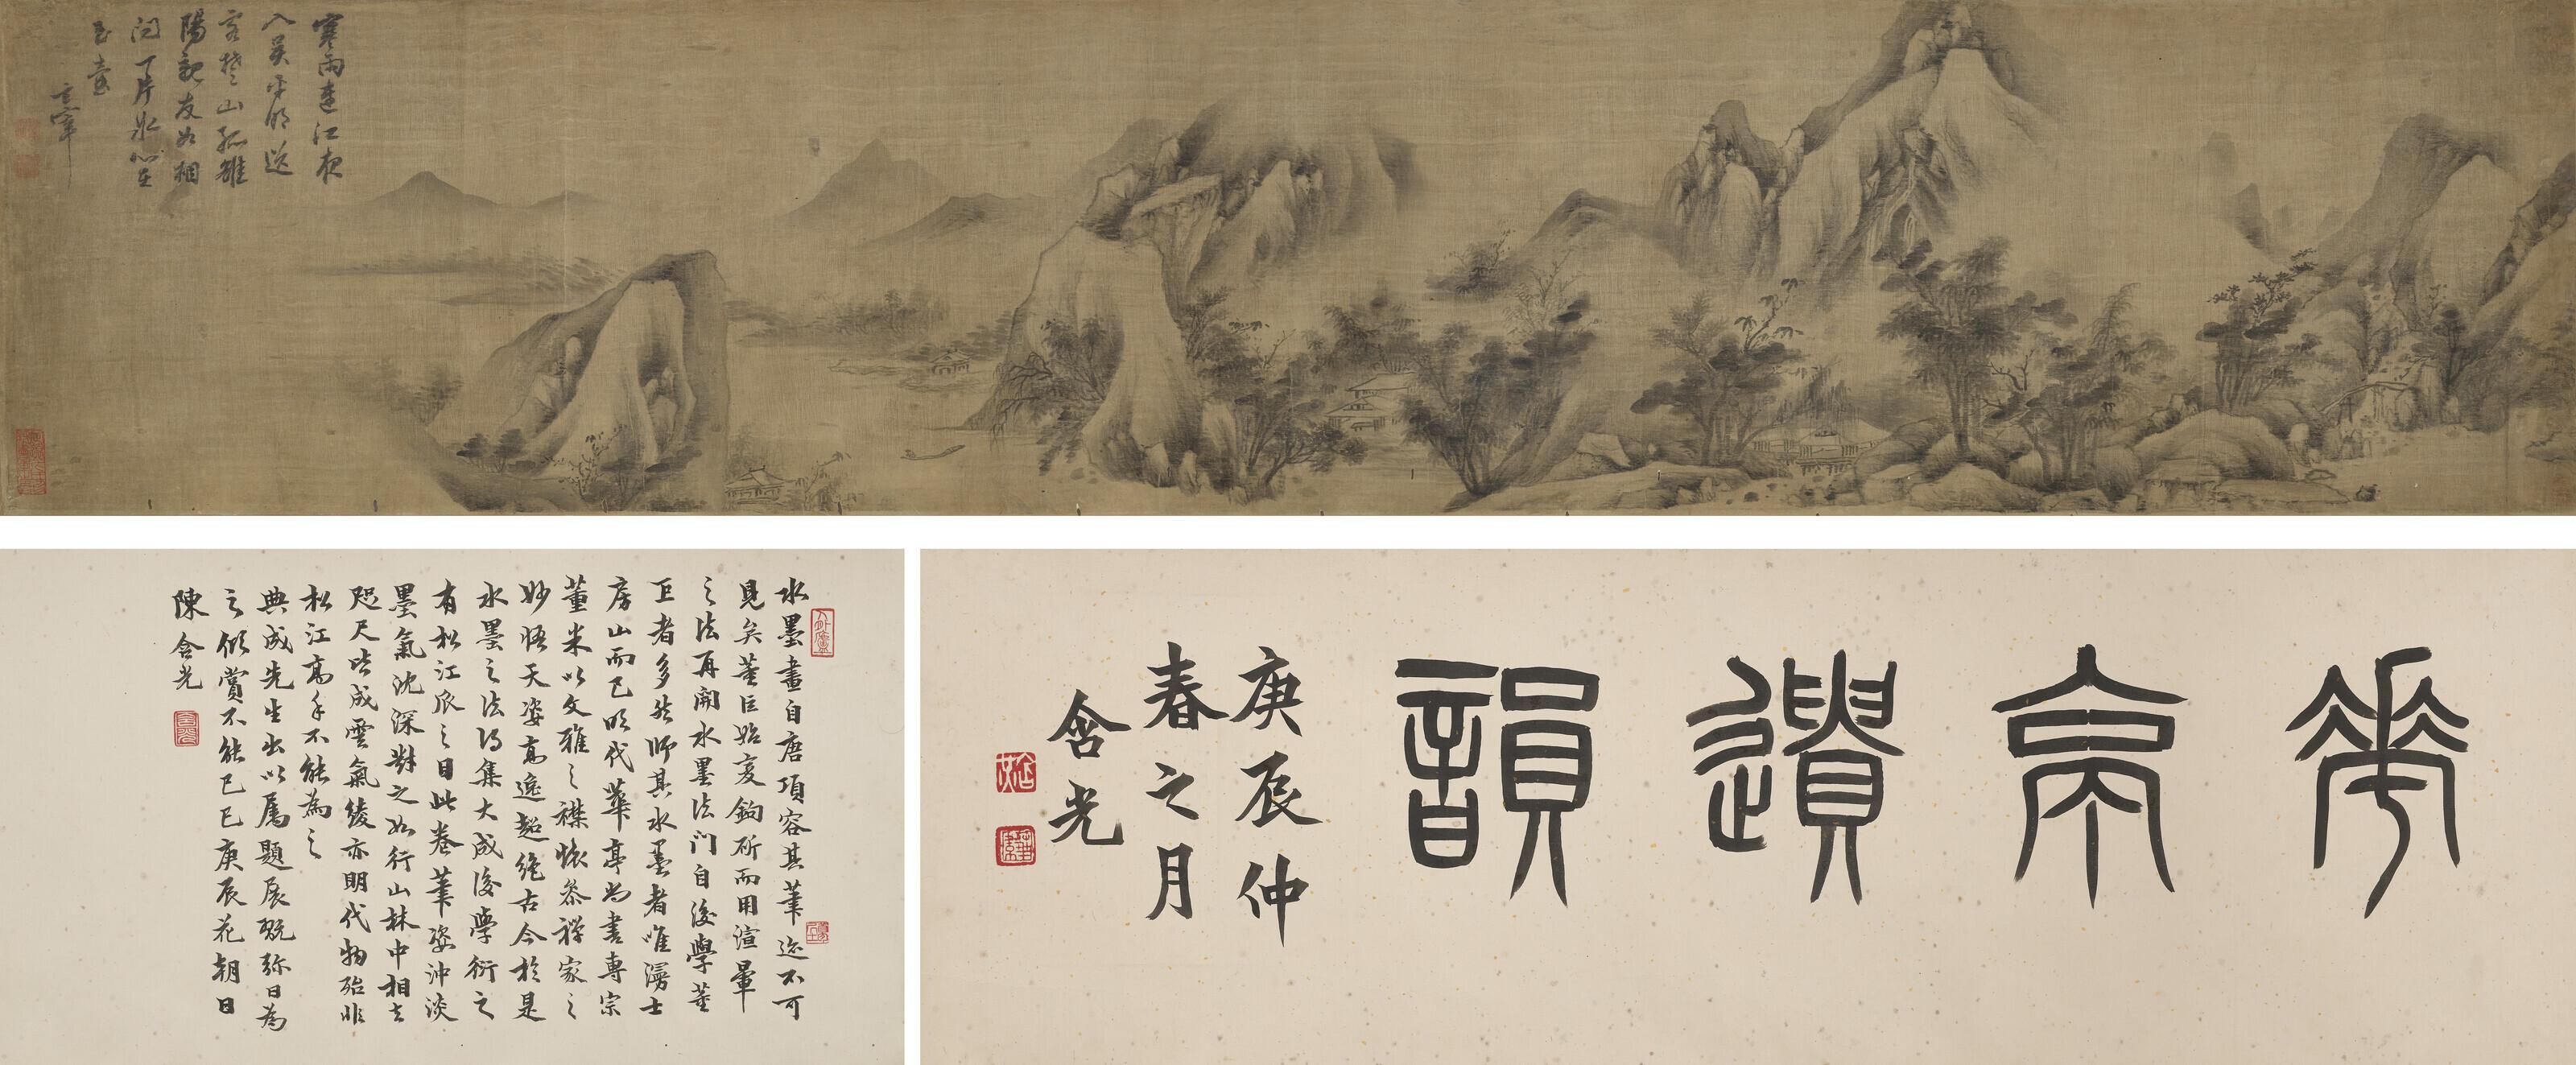 寒雨連江夜
入吳平明送
客楚山孤雒
陽親友如相
問一片冰心在
玉壺
玄宰
華亭遺韻
庚辰仲
春之月
含光
水墨畫自唐項容其筆迹不可
見矣董巨始變鉤斫而用渲暈
之法再開水墨法门自後學董
巨者多然師其水墨者唯溤士
房山而已明代華亭尚書專宗
董米以文雅之襟懷参禪家之
妙悟天姿高逸超絕古今於是
水墨之法乃集大成後學衍之
有松江派之目此卷筆姿沖淡
墨氣沈深對之如行山林中相去
咫尺皆成雲氣後亦明代物殆非
松江高手不能為之
典成先生出以属題展翫弥日為
之傾賞不能已已庚辰花朝日
陳含光